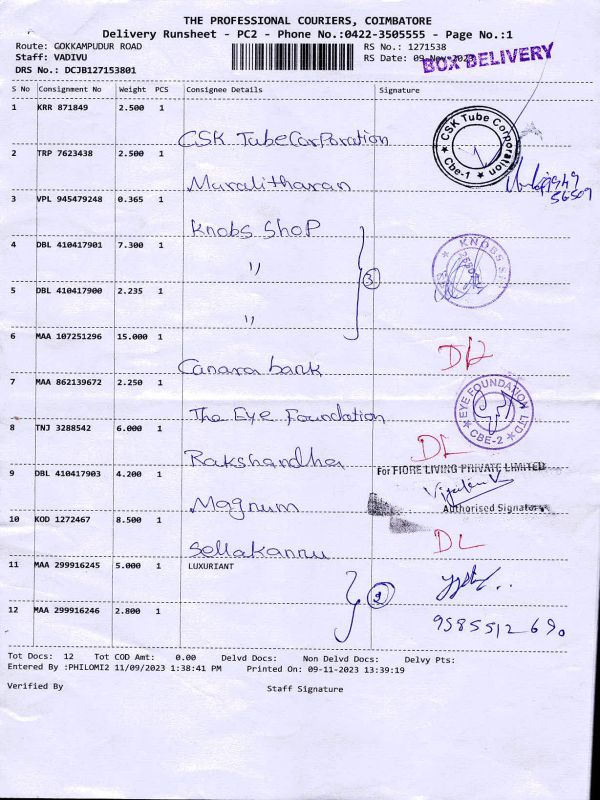 THE PROFESSIONAL COURIERS, COIMBATORE
Delivery Runsheet - PC2 - Phone No.:0422-3505555 - Page No.:1
Route: GOKKAMPUDUR ROAD RS No.: 1271538
Staff: VADIVU RS Date: 09-Nov-2023
BOX DELIVERY
DRS No.: DCJB127153801
S No Consignment No Weight PCS Consignee Details Signature
1 KRR 871849 2.500 1 CSK TubeCorporation
CSK Tube Corporation Cbe-1
2 TRP 7623438 2.500 1 Muralitharan
3 VPL 945479248 0.365 1 Knobs Shop
4 DBL 410417901 7.300 1 "
KNOBS
5 DBL 410417900 2.235 1 "
3
6 MAA 107251296 15.000 1 Canara bank
7 MAA 862139672 2.250 1 The Eye Foundation
EYE FOUNDATION LTD CBE-2
8 TNJ 3288542 6.000 1 Rakshandha DL
9 DBL 410417903 4.200 1 Magnum
For FIORE LIVING PRIVATE LIMITED
Authorised Signatory
10 KOD 1272467 8.500 1 Sellakannu DL
11 MAA 299916245 5.000 1 LUXURIANT
12 MAA 299916246 2.800 1
Tot Docs: 12 Tot COD Amt: 0.00 Delvd Docs: Non Delvd Docs: Delvy Pts:
Entered By :PHILOMI2 11/09/2023 1:38:41 PM Printed On: 09-11-2023 13:39:19
Verified By Staff Signature